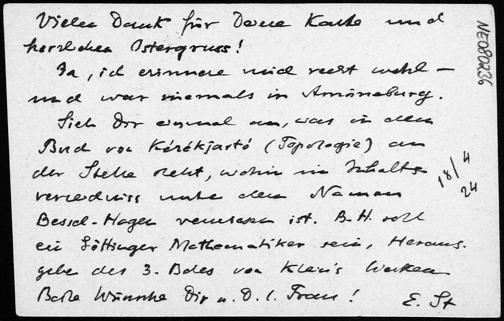 Vielen Dank für Deine Karte und
herzlichen Ostergruss!
Ja, ich erinnere mich recht wohl –
und war niemals in Amöneburg.
Sieh Dir einmal an, was in dem
Buch von Kérékjartó (Topologie) an
der Stelle steht, wohin im Inhalts-
verzeichnis unter dem Namen
Bessel-Hagen verwiesen ist. B.H. soll
ein Göttinger Mathematiker sein, Heraus-
geber des 3. Bdes von Klein's Werken
Beste Wünsche Dir u. D. l. Frau!
E. St
18/4
24
NE080236